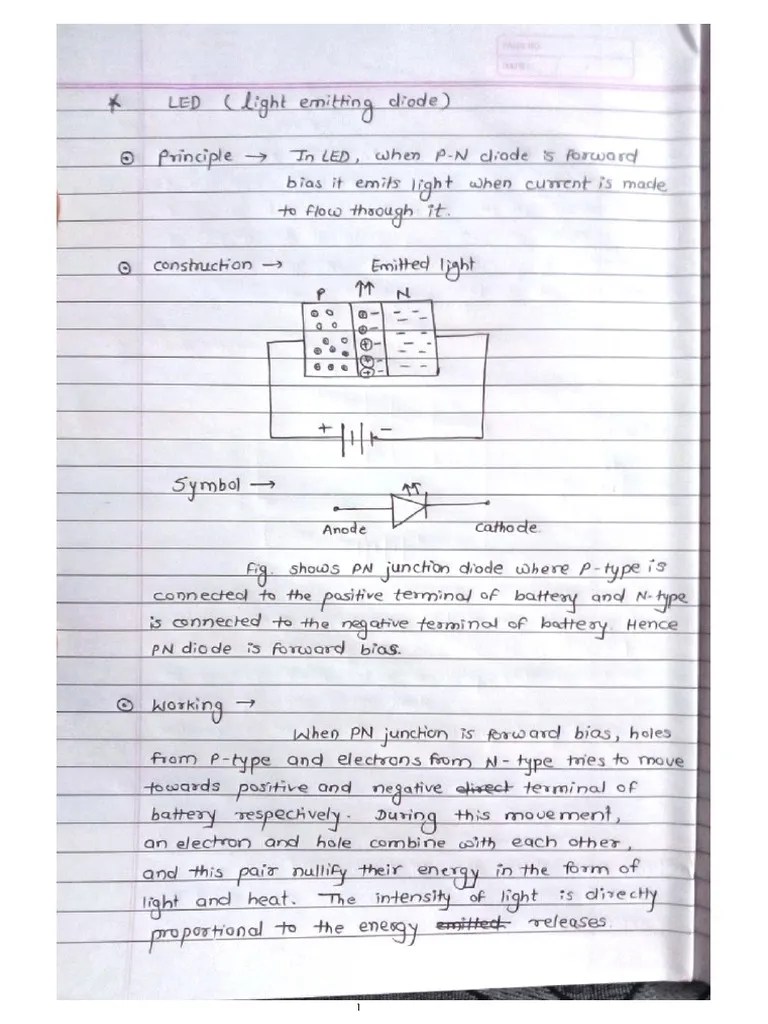 * LED (light emitting diode)
⊙ Principle → In LED, when P-N diode is forward
bias it emits light when current is made
to flow through it.
⊙ construction → Emitted light
P N
+ -
Symbol →
Anode Cathode
Fig. shows PN junction diode where P-type is
connected to the positive terminal of battery and N-type
is connected to the negative terminal of battery. Hence
PN diode is forward bias.
⊙ Working →
When PN junction is forward bias, holes
from P-type and electrons from N-type tries to move
towards positive and negative direct terminal of
battery respectively. During this movement,
an electron and hole combine with each other,
and this pair nullify their energy in the form of
light and heat. The intensity of light is directly
proportional to the energy emitted releases.
1